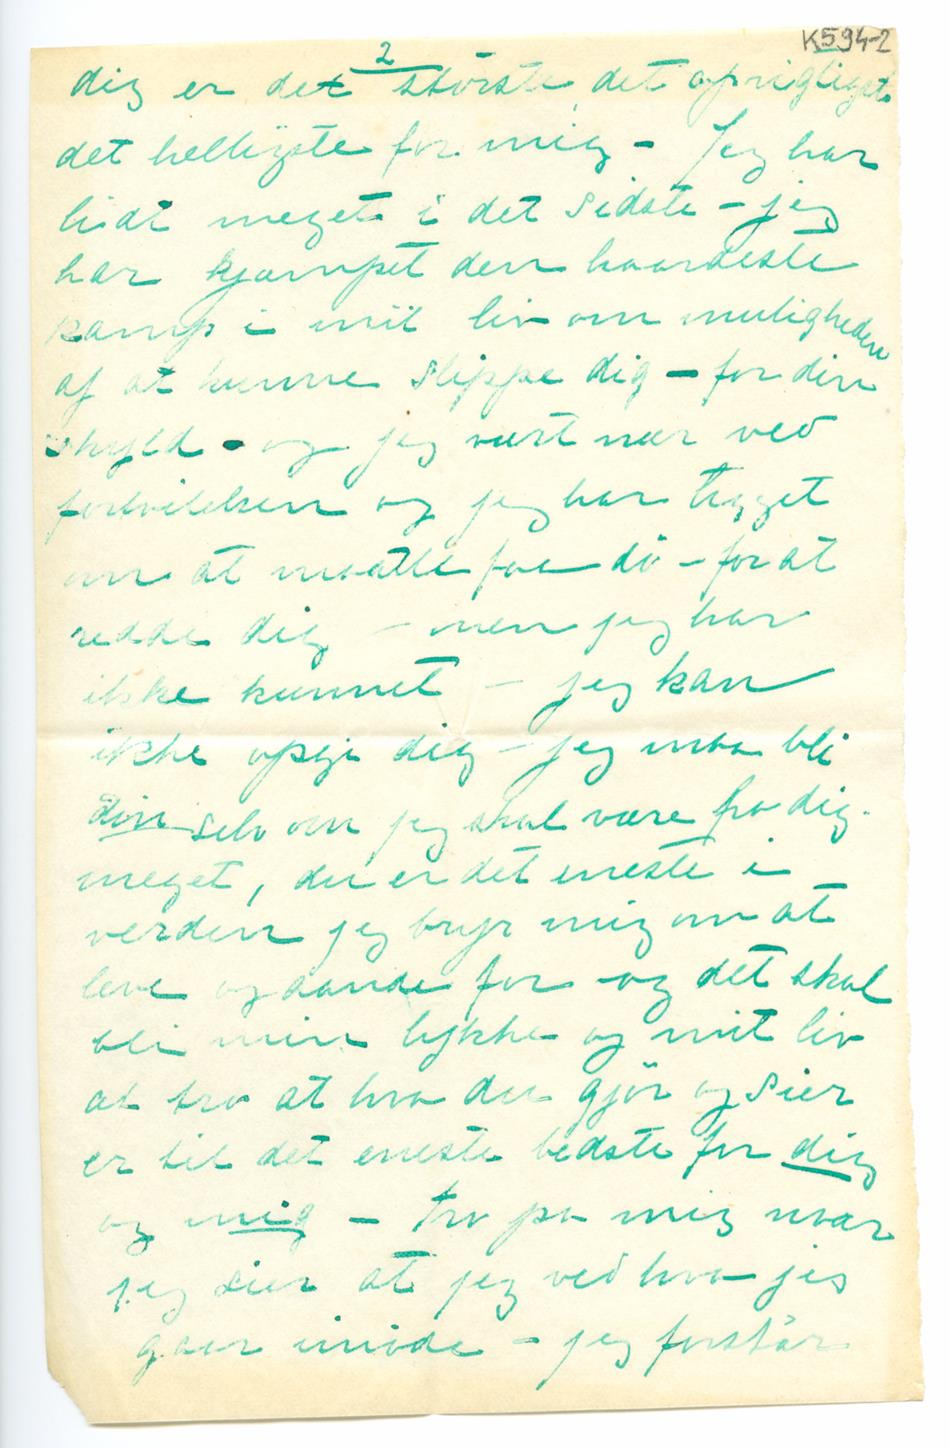 K594-2
2
dig er det største, det oprigtigste
det helligste for mig - Jeg har
lidt meget i det sidste - jeg
har kjæmpet den haardeste
kamp i mit liv om muligheden
af at kunne slippe dig - for din
skyld - og jeg vært nær ved
fortvilelsen og jeg har tigget
om at maatte faa dø - for at
redde dig - men jeg har
ikke kunnet - jeg kan
ikke opgi dig - jeg maa bli
din selv om jeg skal være fra dig
meget, du er det eneste i
verden jeg bryr mig om at
leve og aande for - og det skal
bli min lykke og mit liv
at tro at hva du gjør og sier
er til det eneste bedste for dig
og mig - tro på mig naar
jeg sier at jeg ved hva jeg
gaar imøde - jeg forstår